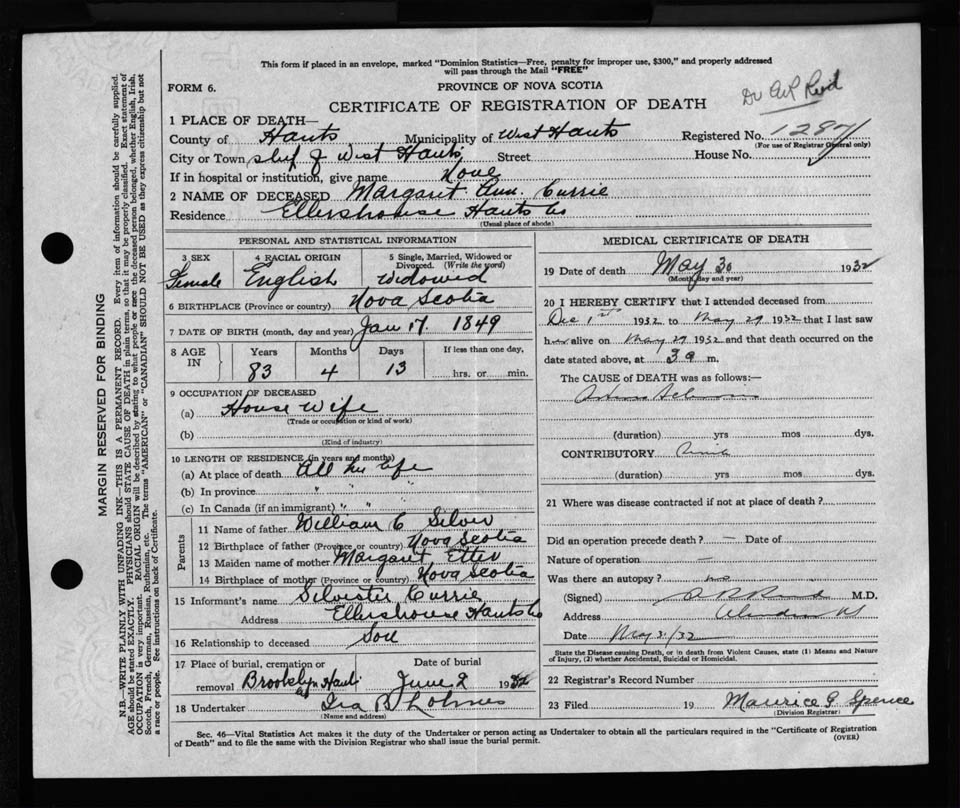 This form if placed in an envelope, marked "Dominion Statistics—Free, penalty for improper use, $300," and properly addressed
will pass through the Mail "FREE"
FORM 6.
PROVINCE OF NOVA SCOTIA
CERTIFICATE OF REGISTRATION OF DEATH
1 PLACE OF DEATH—
County of Hants Municipality of West Hants Registered No. 1287
(For use of Registrar General only)
City or Town West Hants Street House No.
If in hospital or institution, give name None
2 NAME OF DECEASED Margaret Ann. Currie
Residence Ellershouse Hants Co
(Usual place of abode)
PERSONAL AND STATISTICAL INFORMATION
3 SEX 4 RACIAL ORIGIN 5 Single, Married, Widowed or
Divorced. (Write the word)
Female English Widowed
6 BIRTHPLACE (Province or country) Nova Scotia
7 DATE OF BIRTH (month, day and year) Jan 17. 1849
8 AGE IN Years Months Days If less than one day,
83 4 13 hrs. or min.
9 OCCUPATION OF DECEASED
(a) House Wife
(Trade or occupation or kind of work)
(b)
(Kind of industry)
10 LENGTH OF RESIDENCE (in years and months)
(a) At place of death all her life
(b) In province " "
(c) In Canada (if an immigrant) " "
Parents
11 Name of father William C Silver
12 Birthplace of father (Province or country) Nova Scotia
13 Maiden name of mother Margaret Etter
14 Birthplace of mother (Province or country) Nova Scotia
15 Informant's name Silvester Currie
Address Ellershouse Hants Co
16 Relationship to deceased Son
17 Place of burial, cremation or Date of burial
removal Brooklyn Hants June 2 1932
18 Undertaker Ira B Lohnes
(Name and address)
MEDICAL CERTIFICATE OF DEATH
19 Date of death May 30 1932
(Month, day and year)
20 I HEREBY CERTIFY that I attended deceased from
Dec 1st 1932 to May 29 1932 that I last saw
her alive on May 29 1932 and that death occurred on the
date stated above, at 3 a m.
The CAUSE OF DEATH was as follows:—
(duration) yrs mos dys.
CONTRIBUTORY
(duration) yrs mos dys.
21 Where was disease contracted if not at place of death?
Did an operation precede death? — Date of
Nature of operation —
Was there an autopsy? no
(Signed) M.D.
Address
Date May 31/32
State the Disease causing Death, or in death from Violent Causes, state (1) Means and Nature
of Injury, (2) whether Accidental, Suicidal or Homicidal.
22 Registrar's Record Number
23 Filed 19 Maurice G. Spence
(Division Registrar)
Sec. 46—Vital Statistics Act makes it the duty of the Undertaker or person acting as Undertaker to obtain all the particulars required in the "Certificate of Registration
of Death" and to file the same with the Division Registrar who shall issue the burial permit.
(OVER)
MARGIN RESERVED FOR BINDING
N.B.—WRITE PLAINLY WITH UNFADING INK—THIS IS A PERMANENT RECORD. Every item of information should be carefully supplied.
AGE should be stated EXACTLY. PHYSICIANS should STATE CAUSE OF DEATH in plain terms, so that it may be properly classified. Exact statement of
OCCUPATION is very important. RACIAL ORIGIN will be described by stating to what people or race the deceased person belonged, whether English, Irish,
Scotch, French, German, Russian, Ruthenian, etc. The terms "AMERICAN" or "CANADIAN" SHOULD NOT BE USED as they express citizenship but not
a race or people. See instructions on back of Certificate.